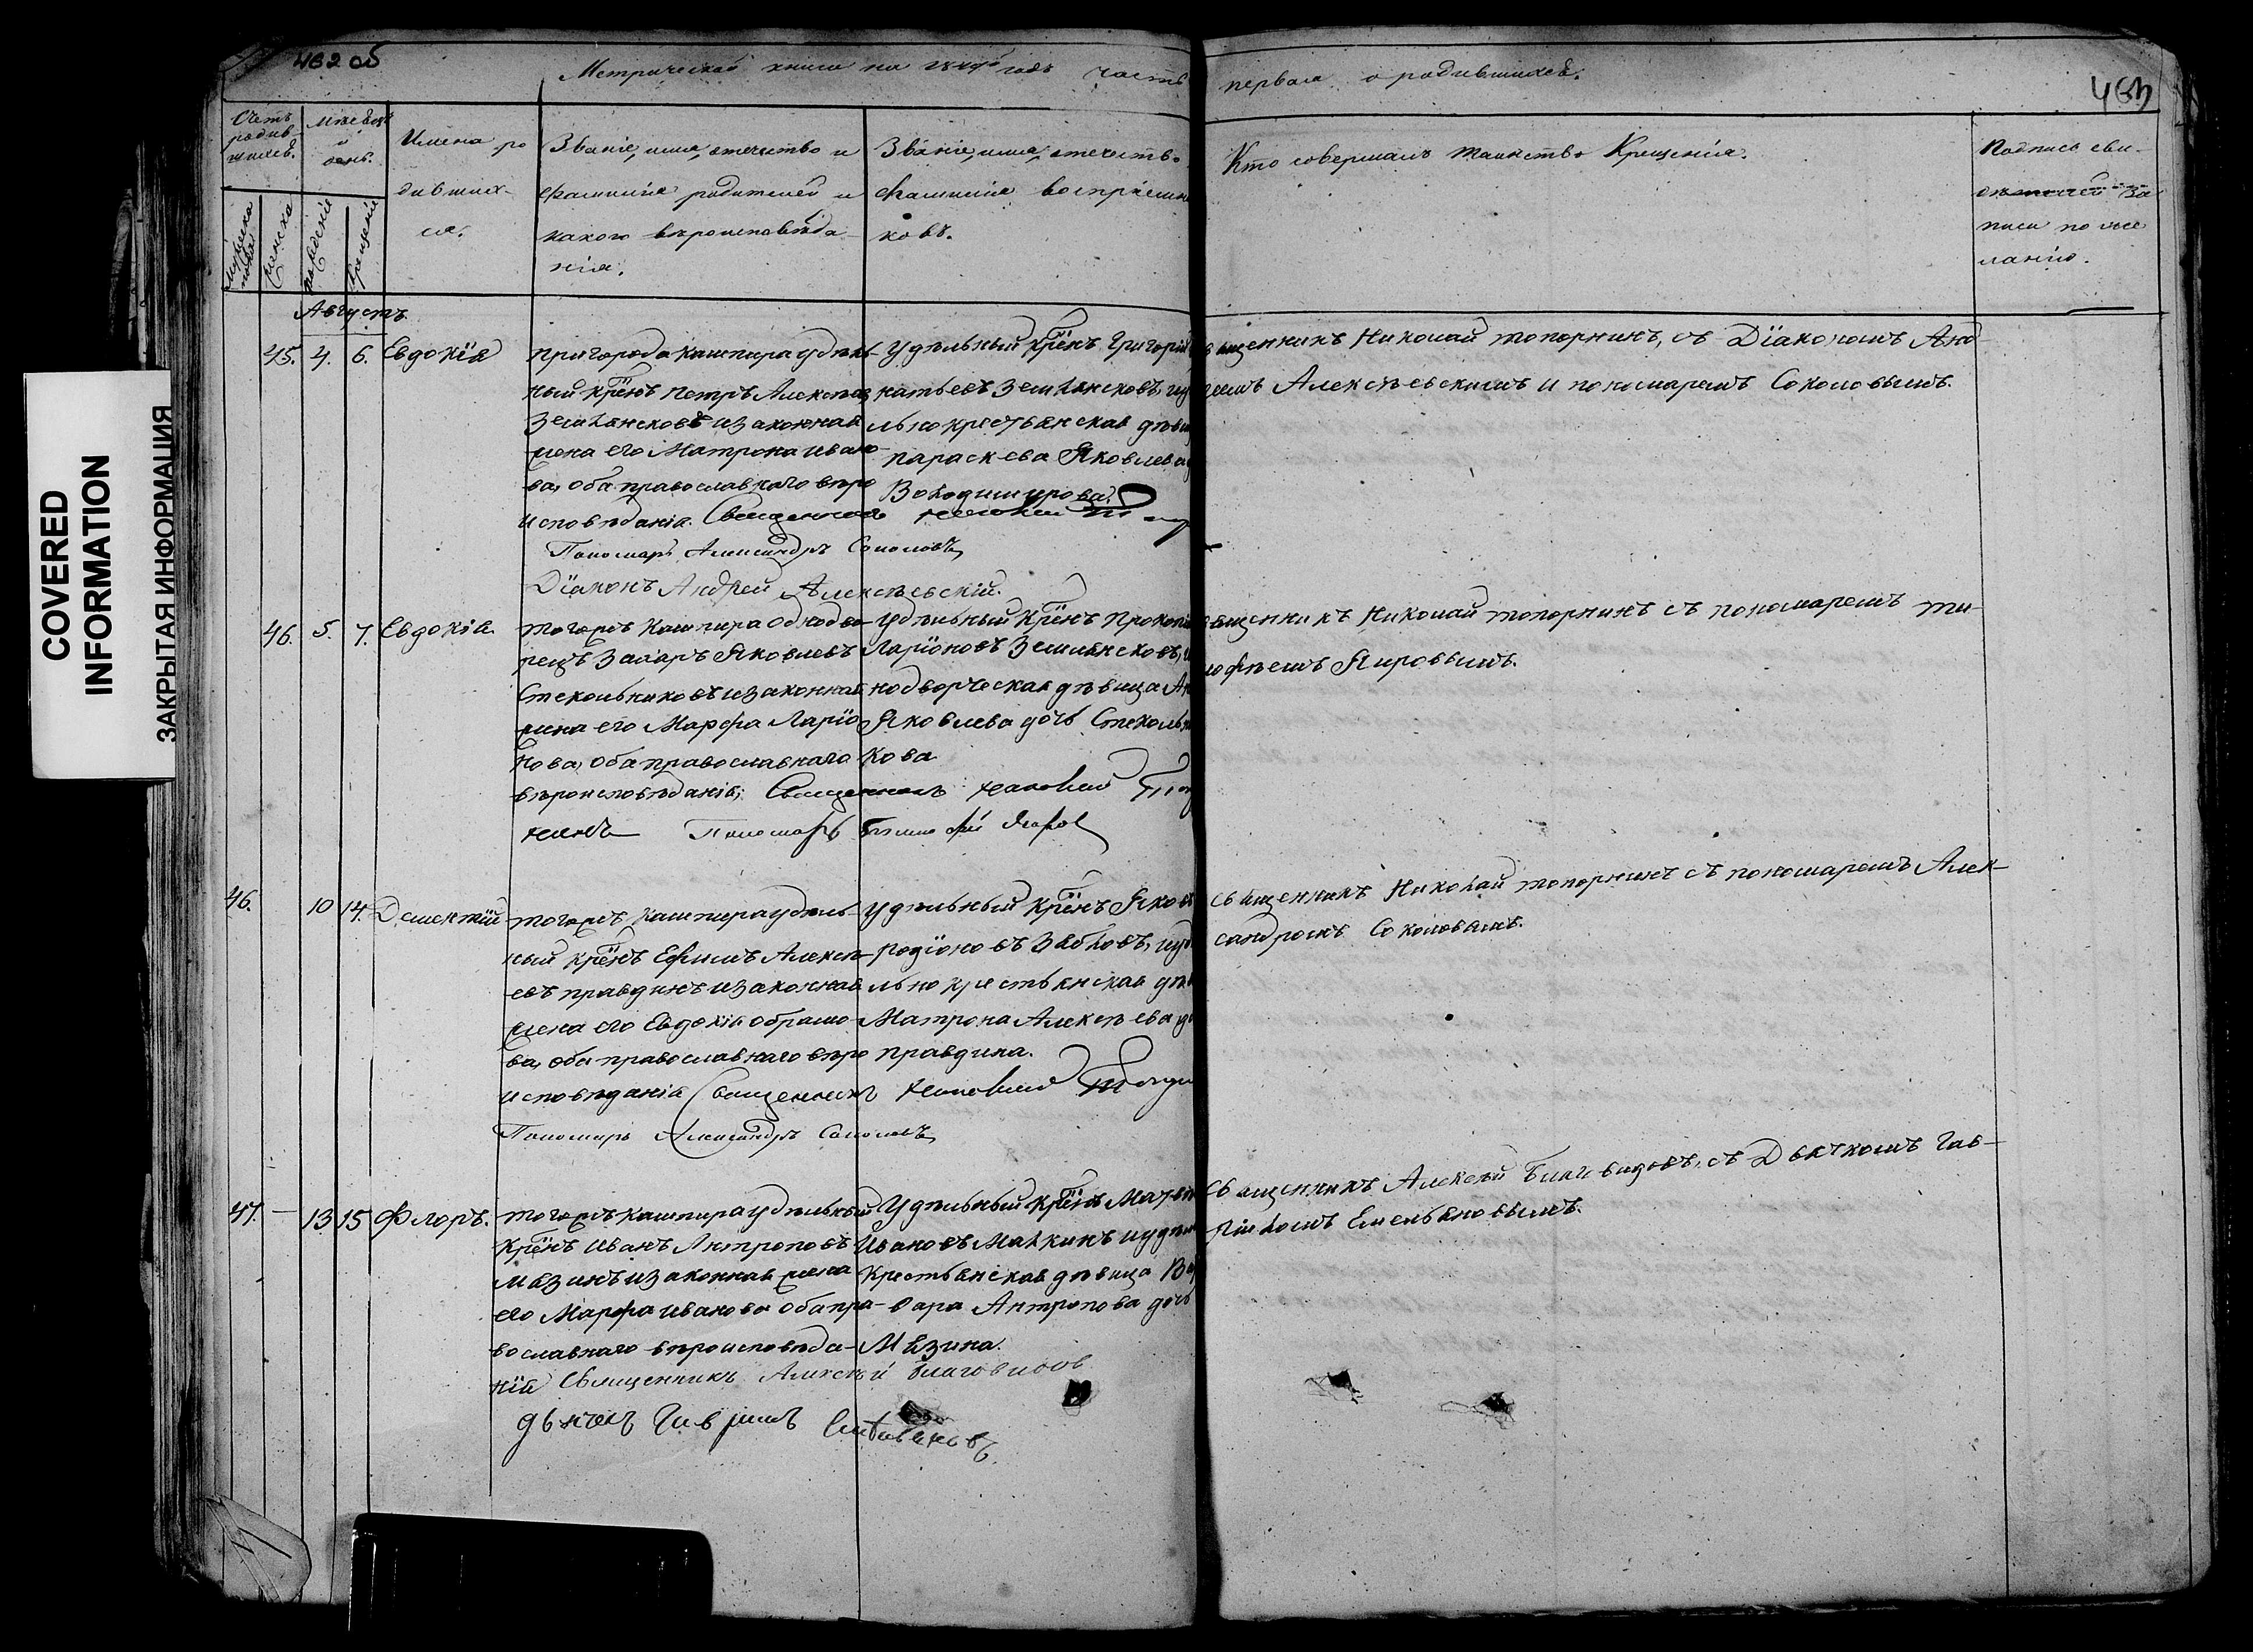 462 об
Метрической книги на 1849го годъ часть первая о родившихся.
463
Счетъ родив-шихся.
Мѣсяцъ и день.
Имена ро
дивших-
ся.
Званіе, имя, отечество и
фамилія родителей и
какого вѣроисповѣда-
нія.
Званіе, имя, отечество
фамилія воспріемни
ковъ.
Кто совершалъ таинство Крещенія.
Подпись сви-
дѣтелей за
писи по же
ланію.
Мужеска пола
Женска
Рожденія
Крещенія
Августъ
45. 4. 6. Евдокія
пригорода Кашпира удѣль-
ный крёнъ Петръ Алексѣев
Землянсковъ изаконная
жена его Матрона Ивано-
ва, оба православнаго вѣро
исповѣданія. Священникъ Николай
Пономарь Александръ Соколовъ
Діаконъ Андрей Алексѣевскій.
Удѣльный Крёнъ Григорій
натьевъ Землянсковъ, иуд
льно крестьянская дѣви
Параскева Яковлева
Володимирова.
вященникъ Николай Топорнинъ, съ Діакономъ Анд-
реемъ Алексѣевскимъ и пономаремъ Соколовымъ.
46. 5. 7. Евдокія.
тогожъ Кашпира однодво-
рецъ Захаръ Яковлевъ
Стекольниковъ изаконная
жена его Марфа Ларіо-
нова, оба православнаго
вѣроисповѣданія; Священникъ Николай Топор
нинъ Пономарь Тимофѣй Яиров
Удѣльный Крёнъ Прокопі
Ларіоновъ Землянсковъ,
нодворческая дѣвица Ан
Яковлева дочь Стекольн
кова
вященникъ Николай Топорнинъ съ пономаремъ Ти-
мофѣемъ Яировымъ.
46. 10 14. Дементій
тогожъ Кашпира удѣль-
ный крёнъ Ефимъ Алексѣ-
евъ Правдинъ изаконная
жена его Евдокія Обрамо-
ва, оба православнаго вѣро
исповѣданія Священникъ Николай Топорн
Пономарь Александръ Соколовъ
Удѣльный Крёнъ Яков
Родіоновъ Зябловъ, иуд
льно крестьянская дѣв
Матрона Алексѣева до
Правдина.
священникъ Николай Топорнинъ съ пономаремъ Алек-
сандромъ Соколовымъ.
47. — 13 15 Флоръ.
тогожъ Кашпира удѣльный
Крёнъ Иванъ Антроповъ
Мазинъ изаконная жена
его Марфа Иванова оба пра-
вославнаго вѣроисповѣда-
нія Священникъ Алексѣй Благовидов
дьячекъ Гаврилъ Емельяновъ
Удѣльный Крёнъ Матвѣ
Ивановъ Малкинъ иудѣл
Крестьянская дѣвица Ва
вара Антропова дочь
Мязина.
священникъ Алексѣй Благовидовъ, съ Дьячкомъ Гав-
ріиломъ Емельяновымъ.
COVERED
INFORMATION
ЗАКРЫТАЯ ИНФОРМАЦИЯ